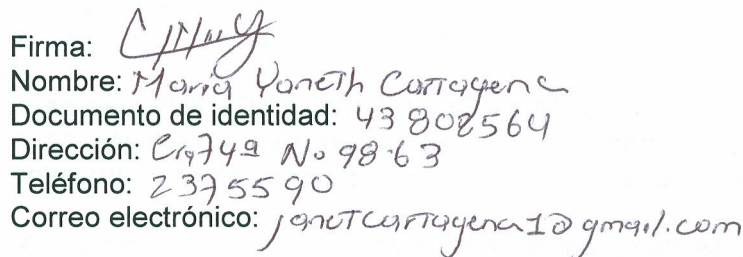 Firma:
Nombre: Maria Yaneth Cartagena
Documento de identidad: 43802564
Dirección: Cra 74ª No 98-63
Teléfono: 2375590
Correo electrónico: janetcartagena1@gmail.com